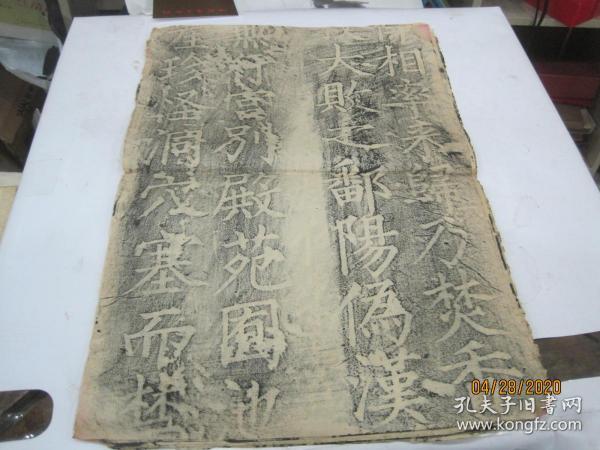 相率来歸乃焚
大敗走鄱陽偽漢
行宮別殿苑囿池
珍怪
塞而
04/28/2020
孔夫子旧書网
www.kongfz.com